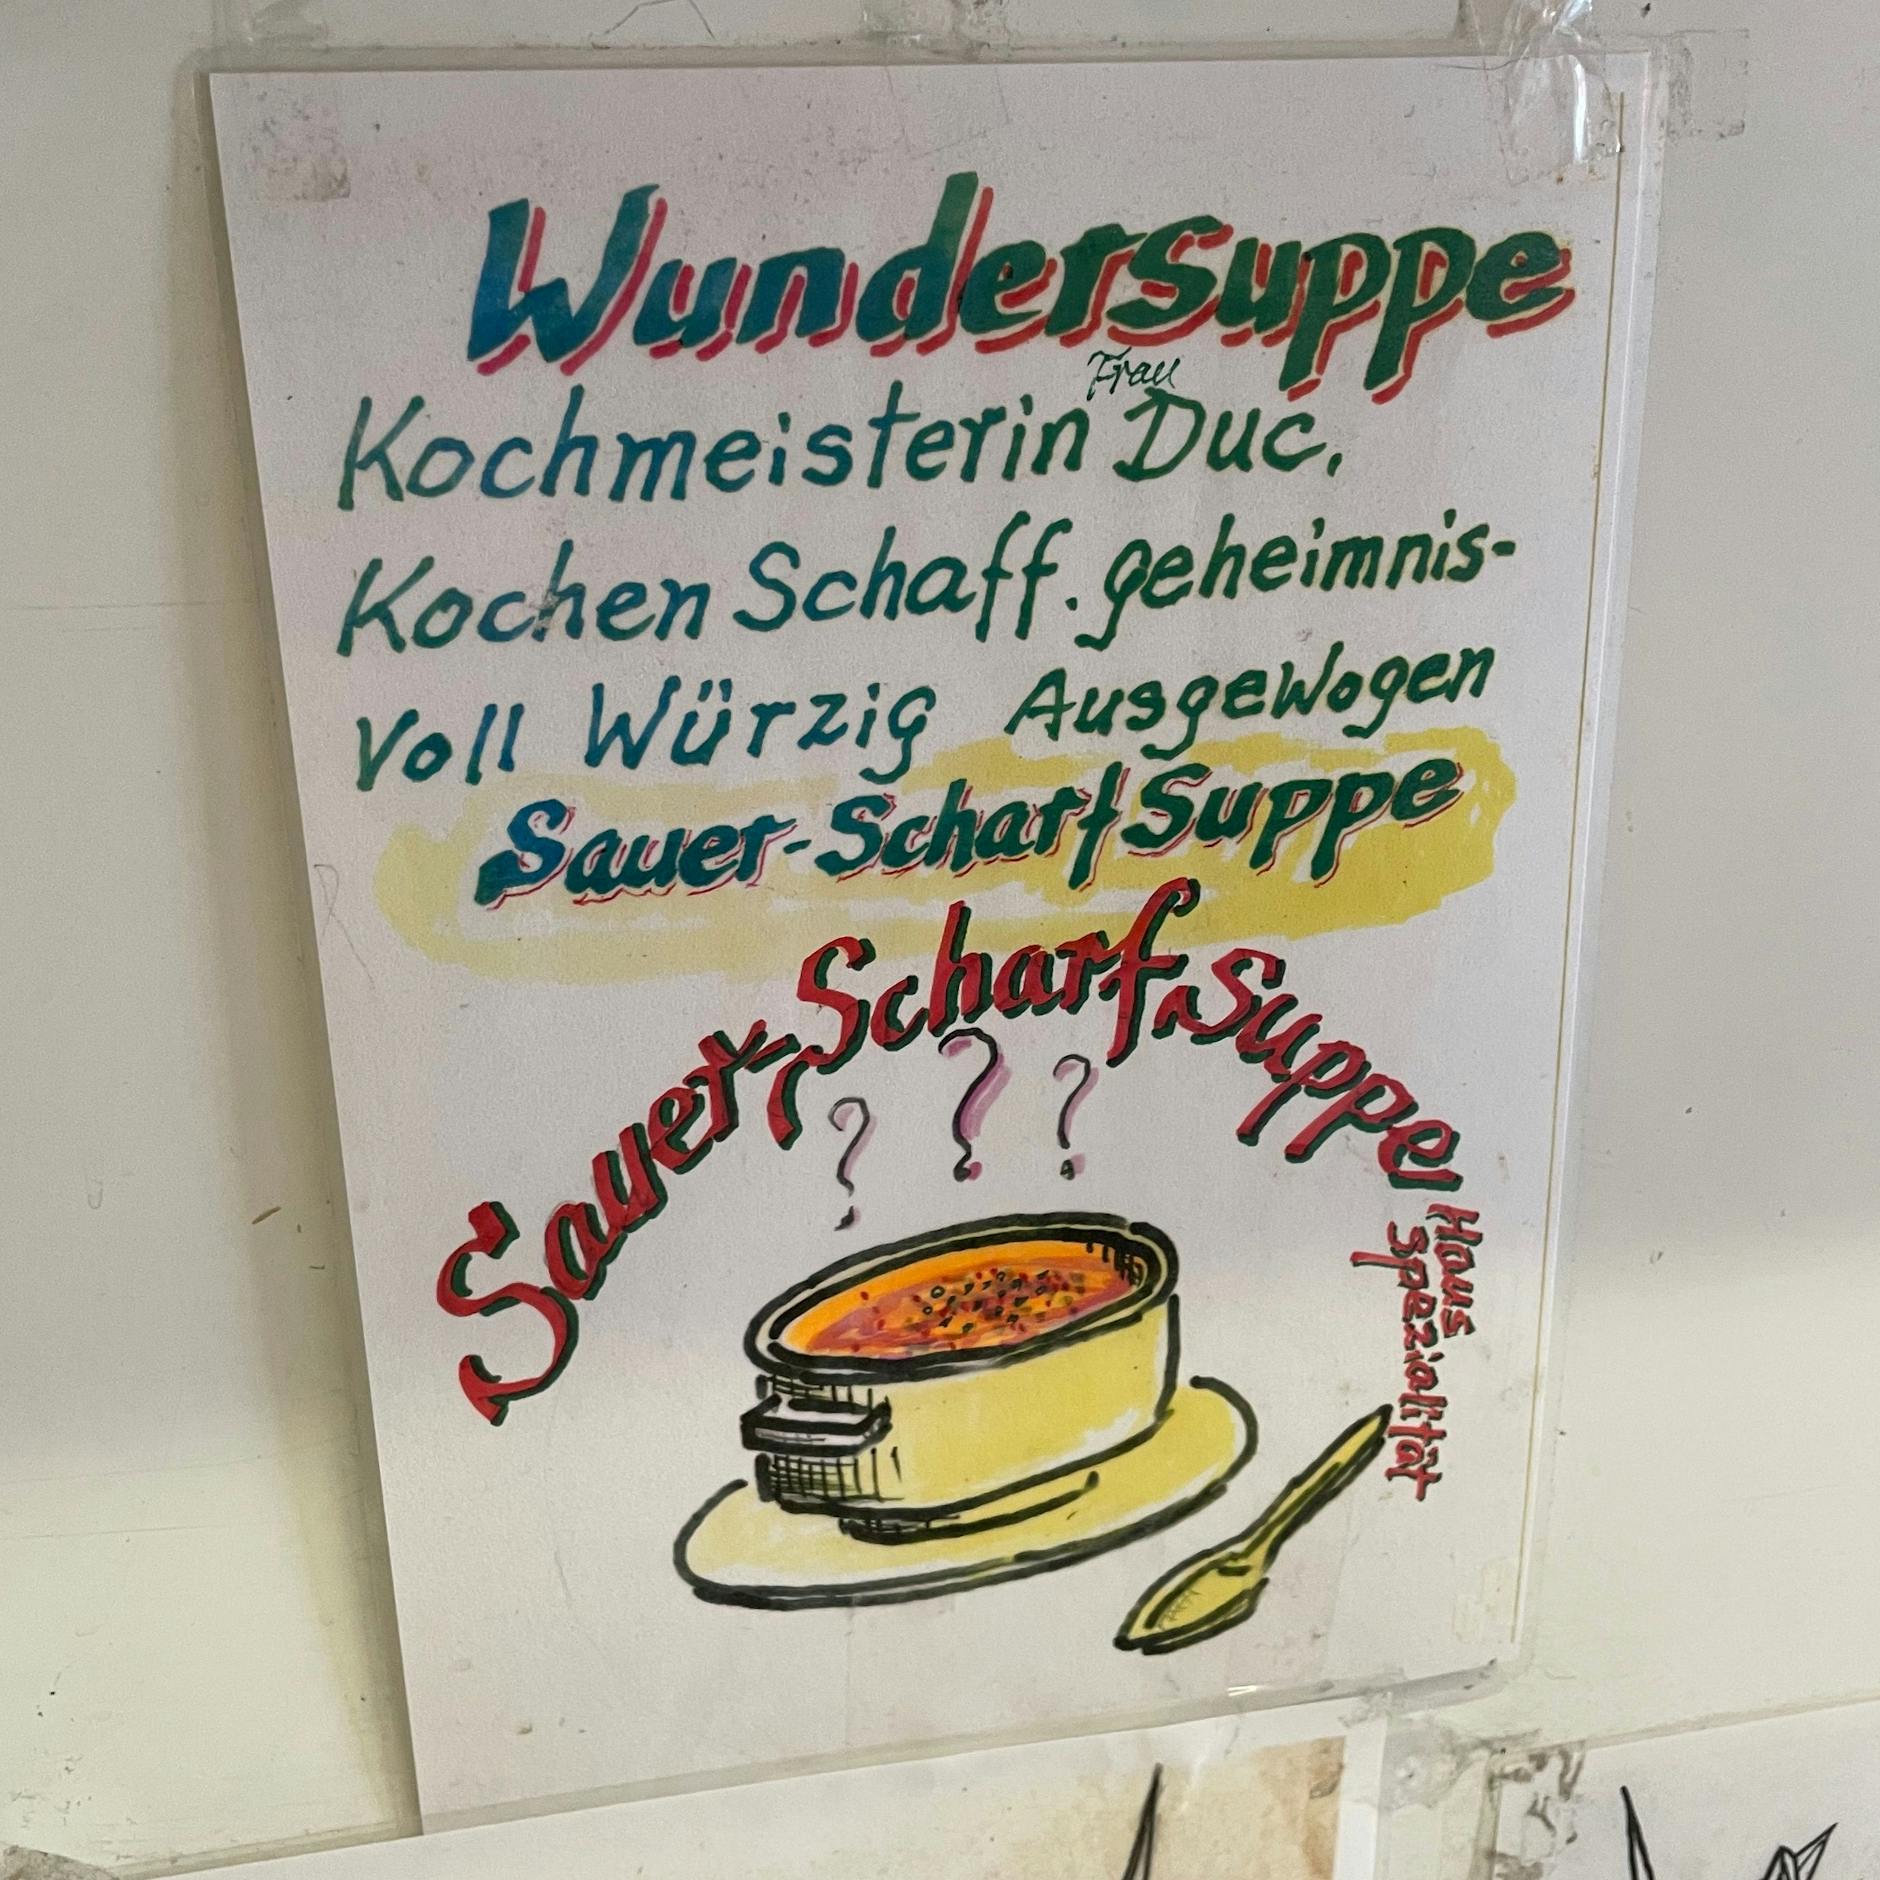 Wundersuppe
Frau
Kochmeisterin Duc,
Kochen Schaff. geheimnis-
Voll Würzig Ausgewogen
Sauer-Scharf Suppe
Sauer-Scharf-Suppe
? ? ?
Haus
Spezialität